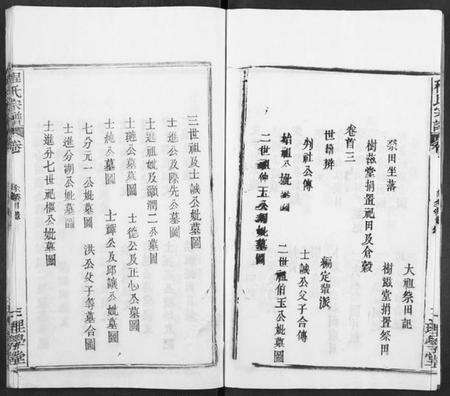 大祖祭田記
祭田坐落 樹滋堂捐置祭田
樹滋堂捐置祀田及倉穀
卷首三
世系辨 編定輩派
列社公傳 士誠公父子合傳
始祖公妣墓圖 二世祖伯玉公妣墓圖
二世祖仲玉公妣墓圖
三世祖及士誠公妣墓圖
士璉公及際先公墓圖
士進祖妣及顯潤二公墓圖
士璉公墓圖 士德公及正心公墓圖
士公墓圖 士公及邱公妣墓圖
七分元一公妣墓圖 洪公父子等墓合圖
士進分湖公妣墓圖
士進分七世祖公妣墓圖
程氏宗譜
卷
三
理學堂